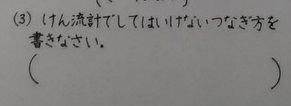 (3) けん流計でしてはいけないつなぎ方を
書きなさい。
(　　　)